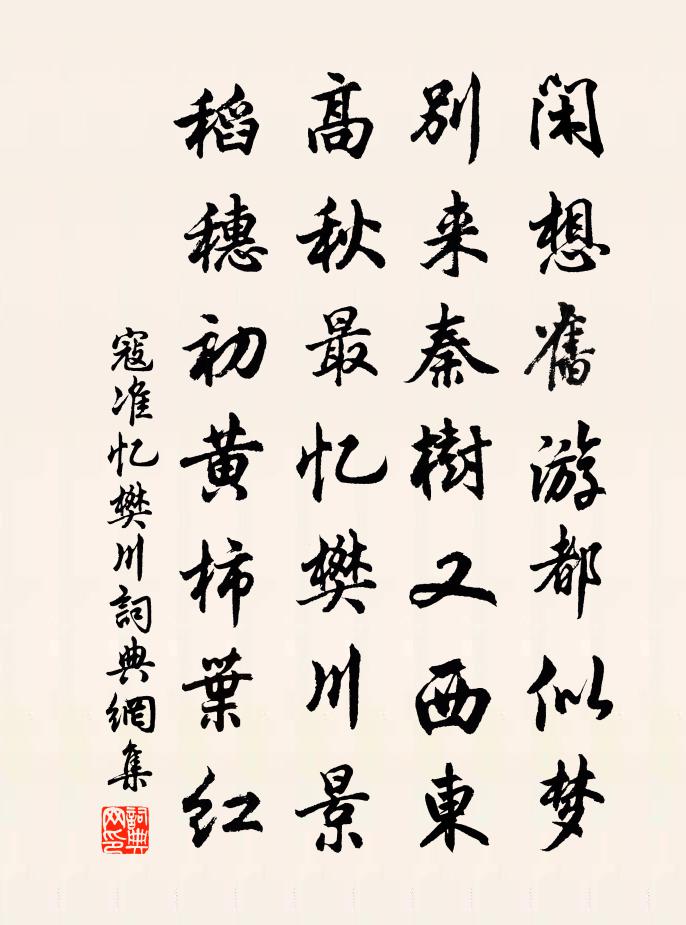 闲想舊游都似梦
别来秦樹又西東
高秋最忆樊川景
稻穗初黄柿葉红
寇准忆樊川詞典網集
詞典网印